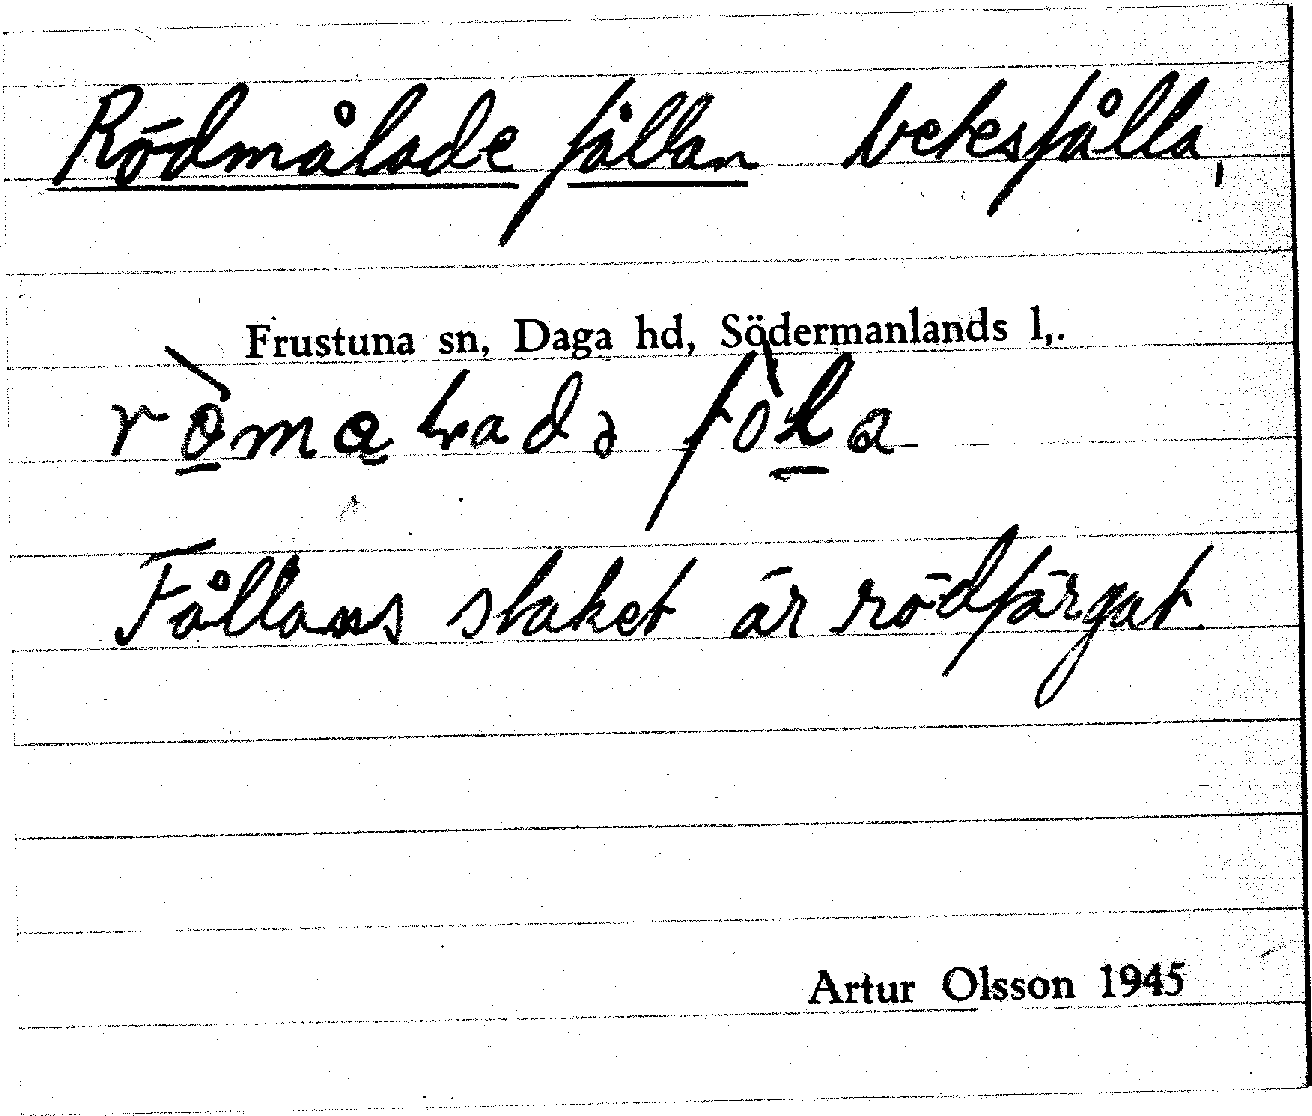 Rödmålade fållan betesfålla,
Frustuna sn, Daga hd, Södermanlands l,.
Fållans staket är rödfärgat.
Artur Olsson 1945